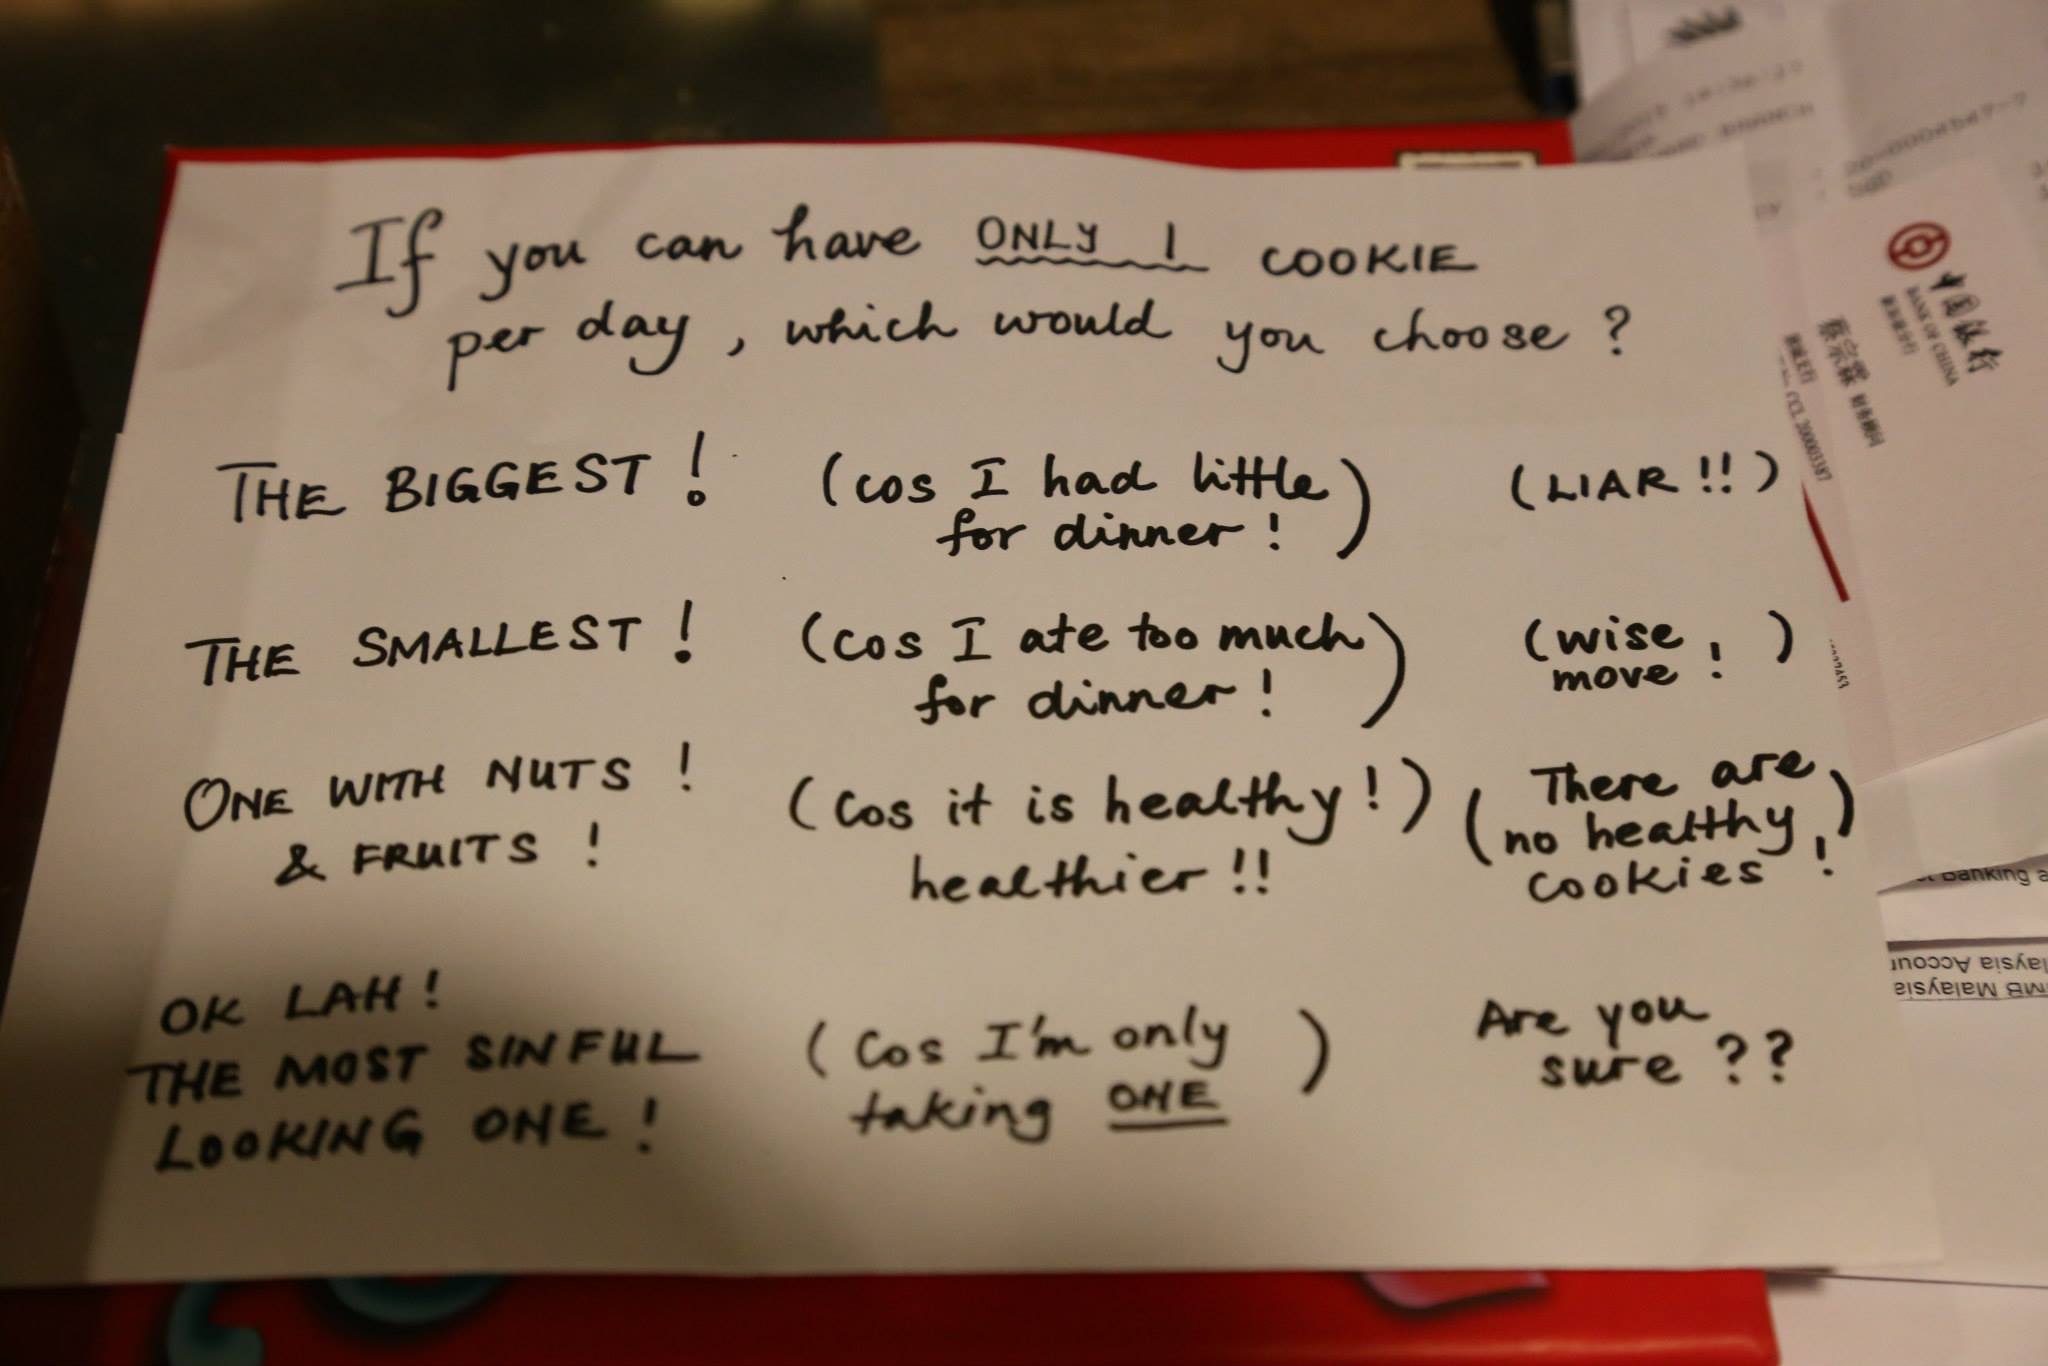 If you can have ONLY 1 COOKIE
per day, which would you choose?
THE BIGGEST! (cos I had little for dinner!) (LIAR!!)
THE SMALLEST! (cos I ate too much for dinner!) (wise move!)
ONE WITH NUTS! & FRUITS! (cos it is healthy!) healthier!! (There are no healthy cookies!)
OK LAH! THE MOST SINFUL LOOKING ONE! (cos I'm only taking ONE) Are you sure??
中国银行
BANK OF CHINA
蔡宗霖
Banking a
laysia Accoun
MB Malaysia